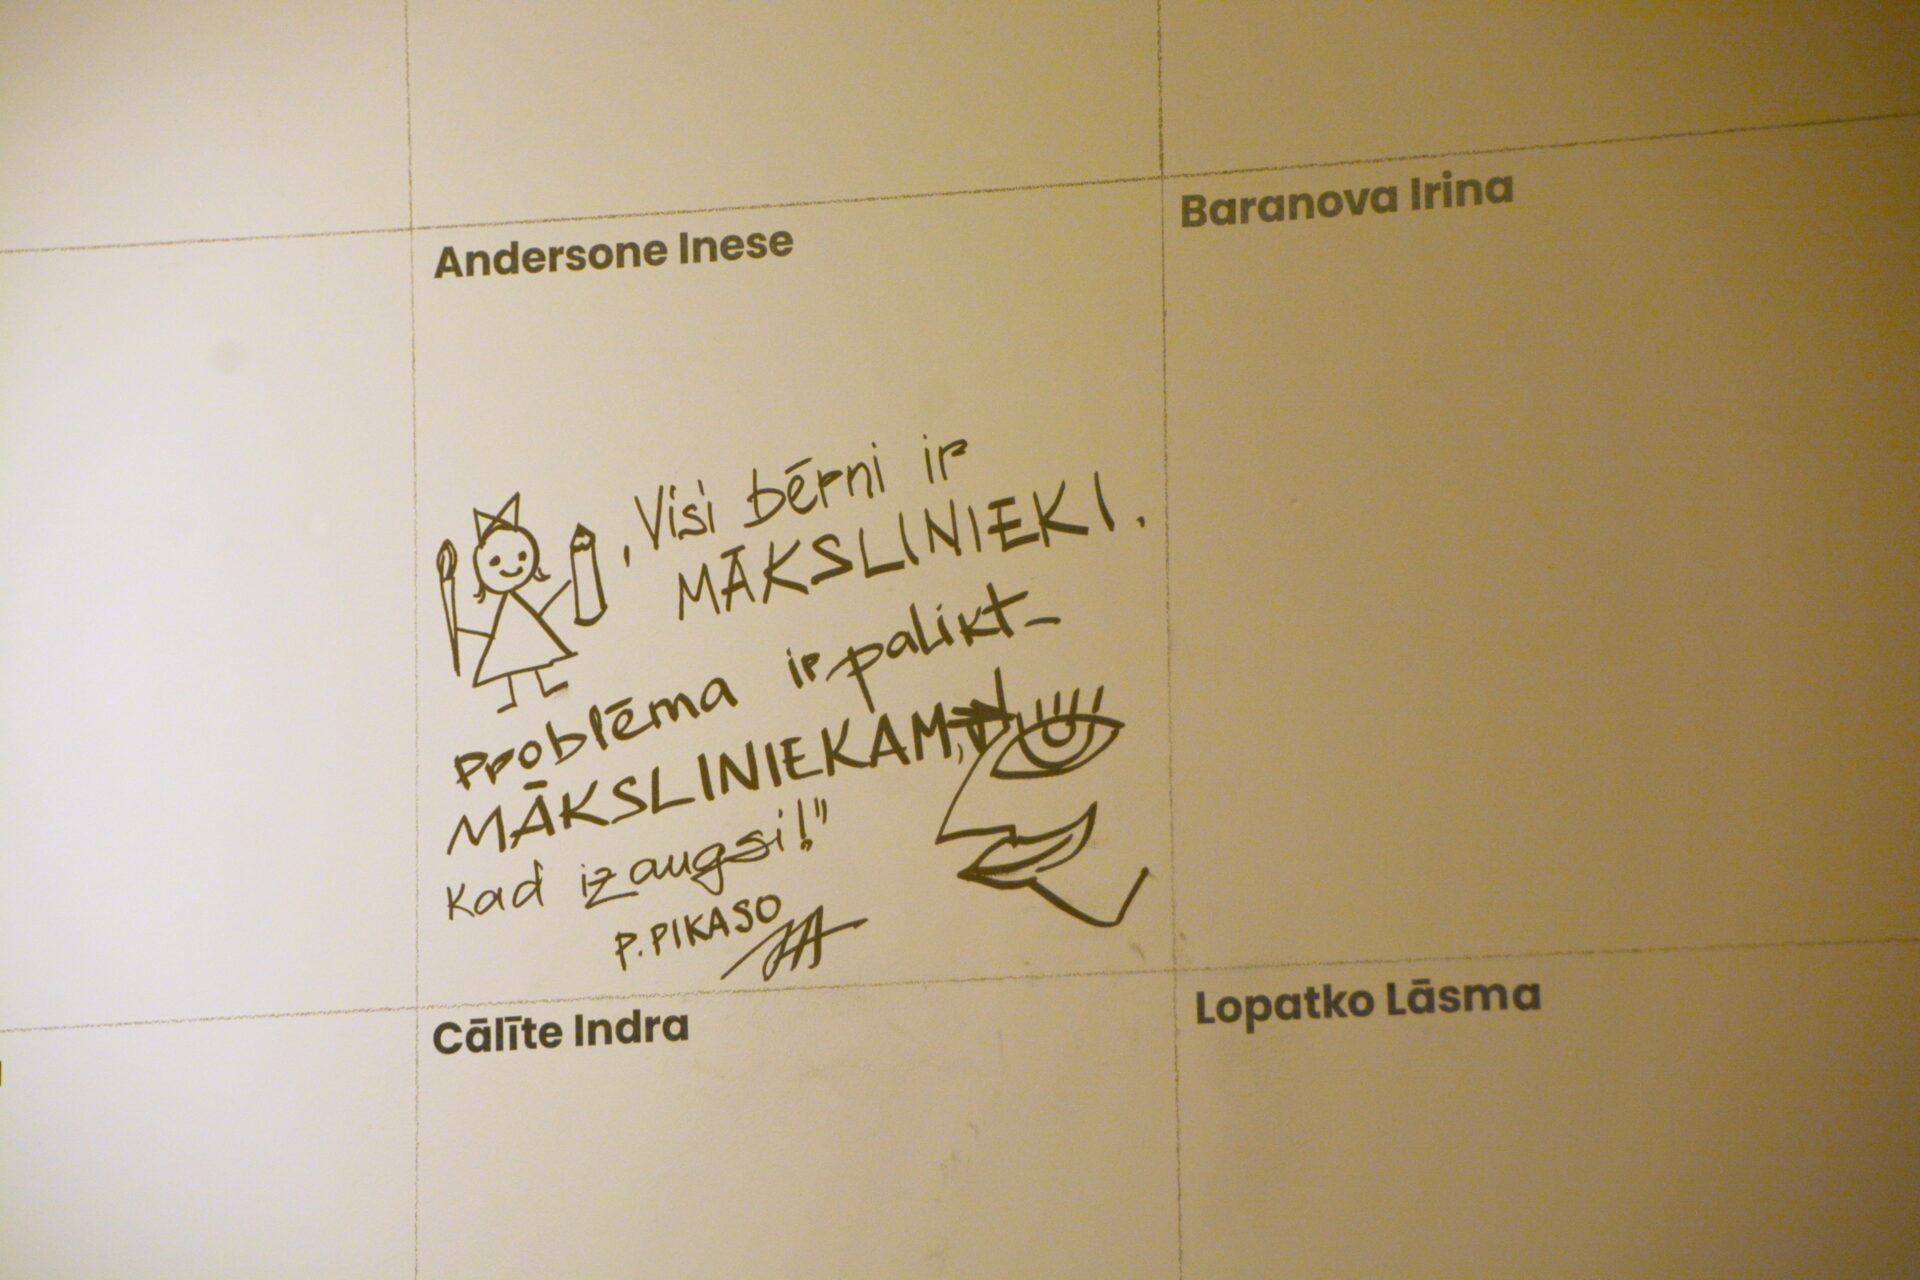 Andersone Inese
Baranova Irina
„Visi bērni ir
MĀKSLINIEKI.
Problēma ir palikt-
MĀKSLINIEKAM,
kad izaugsi!"
P. PIKASO
Cālīte Indra
Lopatko Lāsma